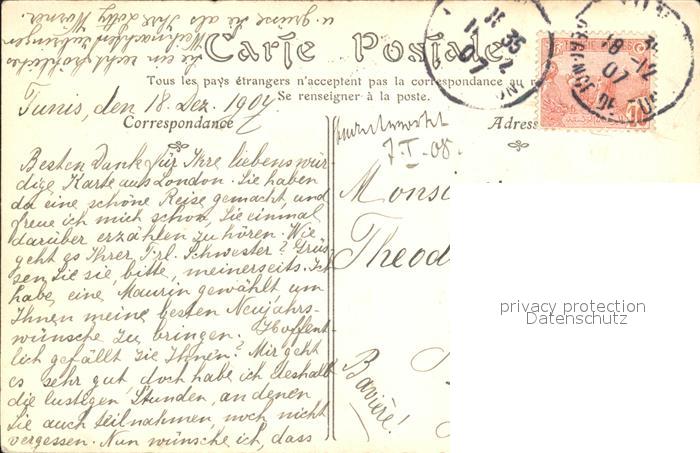 Carte Postale
Tous les pays étrangers n'acceptent pas la correspondance au
Se renseigner à la poste.
Tunis, den 18. Dez. 1907
Correspondance
Adres
Besten Dank für Ihre liebenswür-
dige Karte aus London. Sie haben
da eine schöne Reise gemacht, und
freue ich mich schon, Sie einmal
darüber erzählen zu hören. Wie
geht es Ihrer Frl. Schwester? Grüs-
sen Sie sie, bitte, meinerseits. Ich
habe eine Maurin gewählt um
Ihnen meine besten Neujahrs-
wünsche zu bringen. Hoffent-
lich gefällt sie Ihnen? Mir geht
es sehr gut, doch habe ich deshalb
die lustigen Stunden, an denen
Sie auch teilnahmen, noch nicht
vergessen. Nun wünsche ich, dass
Sie ein recht fröhliches
Weihnachten zubringen
u. grüsse Sie als Ihre
beantwortet
7-I-08.
Monsi
Theod
Bavière!
TUNISIE
10
35
12
07
18-12
07
privacy protection
Datenschutz